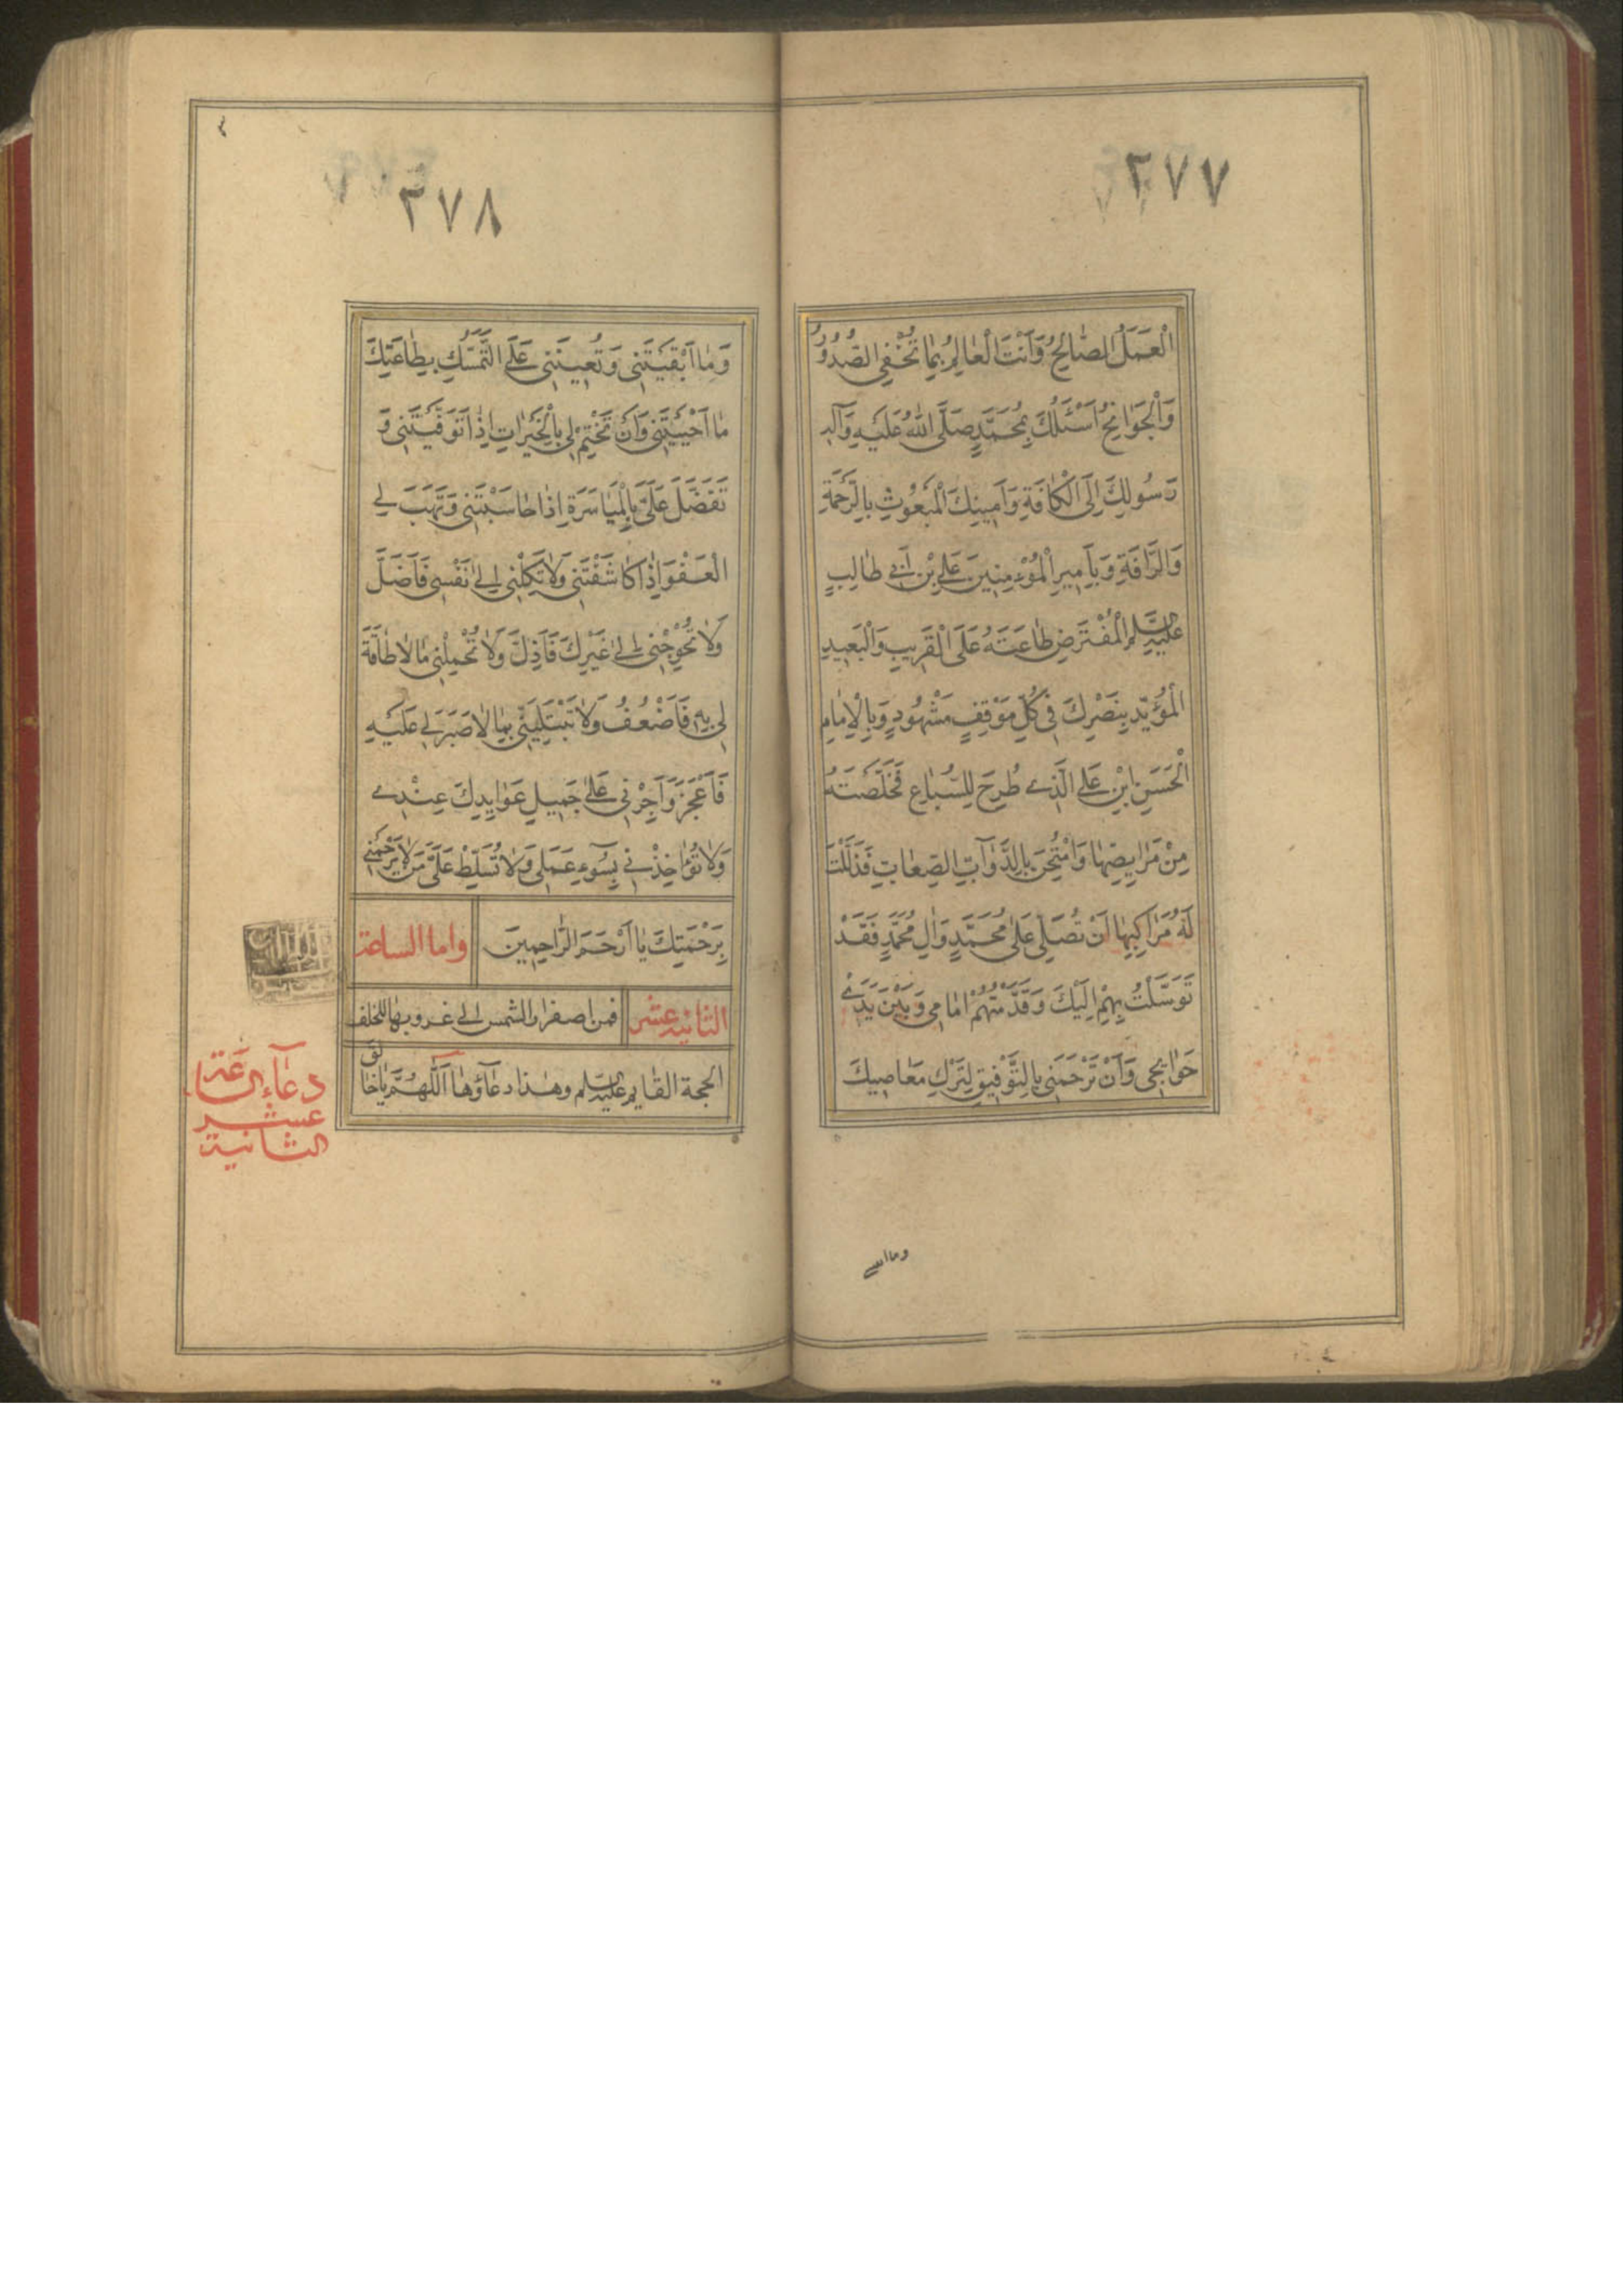 ٢٧٧
الْعَمَلُ الصّالِحُ وَاَنْتَ الْعالِمُ بِما تُخْفِي الصُّدُورُ
وَالْجَوانِحُ اَسْئَلُكَ بِمُحَمَّدٍ صَلَّى اللّٰهُ عَلَيْهِ وَآلِهِ
رَسُولِكَ اِلَى الْكافَةِ وَاَمِينِكَ الْمَبْعُوثِ بِالرَّحْمَةِ
وَالرَّافَةِ وَبِاَمِيرِ الْمُؤْمِنِينَ عَلِيِّ بْنِ اَبي طالِبٍ
عَلَيْهِ السَّلام الْمُفْتَرَضِ طاعَتَهُ عَلَى الْقَرِيبِ وَالْبَعِيدِ
الْمُؤَيَّدِ بِنَصْرِكَ فِي كُلِّ مَوْقِفٍ مَشْهُودٍ وَبِالْاِمامِ
الْحَسَنِ ابْنِ عَلي الَّذي طُرِحَ لِلسِّباعِ فَخَلَّصْتَهُ
مِنْ مَرابِضِها وَامْتُحِنَ بِالدَّوآبِّ الصِّعابِ فَذَلَّلْتَ
لَهُ مَراكِبَها اَنْ تُصَلِّي عَلى مُحَمَّدٍ وَالِ مُحَمَّدٍ فَقَدْ
تَوَسَّلْتُ بِهِمْ اِلَيْكَ وَقَدَّمْتُهُمْ اَمامي وَبَيْنَ يَدَيْ
حَوائِجي وَاَنْ تَرْحَمَني بِالتَّوْفِيقِ لِتَرْكِ مَعاصِيكَ
وما ا
٢٧٨
وَما اَبْقَيْتَني وَتُعِينَني عَلَى التَّمَسُّكِ بِطاعَتِكَ
ما اَحْيَيْتَني وَاَنْ تَخْتِمَ لي بِالْخَيْراتِ اِذا تَوَفَّيْتَني وَ
تَفَضَّلَ عَلَيَّ بِالْمَياسَرَةِ اِذا حاسَبْتَني وَتَهَبَ لي
الْعَفْوَ اِذا كاشَفْتَني وَلا تَكِلْني اِلى نَفْسي فَاَضَلَّ
وَلا تُحْوِجْني اِلى غَيْرِكَ فَاَذِلَّ وَلا تُحْمِلْني ما لا طاقَةَ
لي بِهِ فَاَضْعُفُ وَلا تَبْتَلِيَنّي بِما لا صَبْرَ لي عَلَيْهِ
فَاَعْجَزَ وَاَجِرْني عَلى جَمِيلِ عَوايِدِكَ عِنْدي
وَلا تُؤاخِذْني بِسُوءِ عَمَلي وَلا تُسَلِّطْ عَلَيَّ مَنْ لا يَرْحَمُني
بِرَحْمَتِكَ يا اَرْحَمَ الرّاحِمِينَ واما الساعة
الثانية عشر فمن اصفرار الشمس الى غروبها للخلف
الحجة القايم عليه السلم وهذا دعآؤها اَللّٰهُمَّ يا خالق
دعآء الساعة
عشر
الثانية